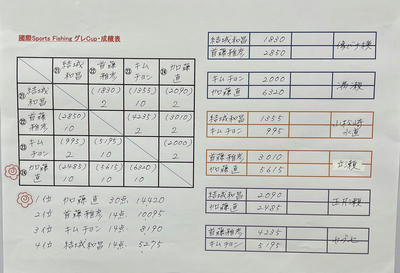 國際Sports Fishing グレCup・成績表
㉑ 結城和昌 ㉒ 首藤雅彦 ㉓ キムチヨン ㉔ 加藤直
㉑ 結城和昌 (1830) 2 (1355) 10 (2090) 2
㉒ 首藤雅彦 (2850) 10 (4235) 2 (3010) 2
㉓ キムチヨン (995) 2 (5195) 10 (2000) 2
㉔ 加藤直 (2485) 10 (5615) 10 (6320) 10
① 1位 加藤直 30点 14420
2位 首藤雅彦 14点 10095
3位 キムチヨン 14点 8190
4位 結城和昌 14点 5275
結城和昌 1830
首藤雅彦 2850
キムチヨン 2000
加藤直 6320
結城和昌 1355
キムチヨン 995
首藤雅彦 3010
加藤直 5615
立瀬
結城和昌 2090
加藤直 2485
首藤雅彦 4235
キムチヨン 5195